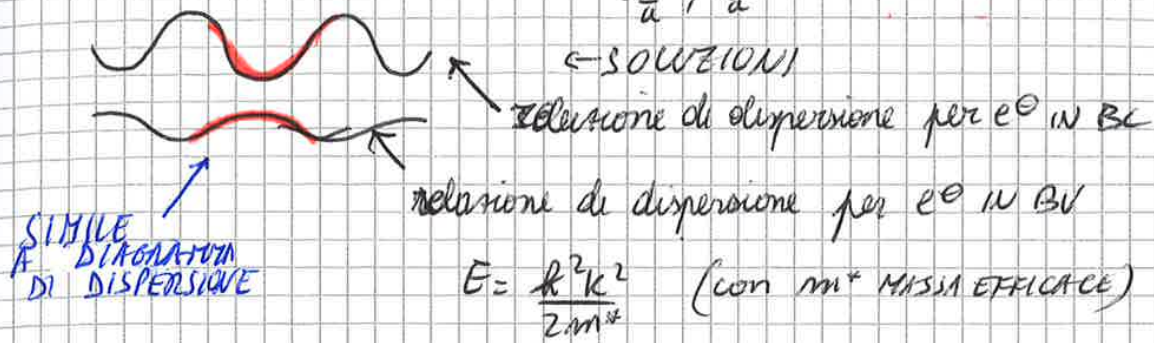 ← SOLUZIONI
relazione di dispersione per e⊖ IN BC
relazione di dispersione per e⊖ IN BV
SIMILE
A DIAGRAMMA
DI DISPERSIONE
E = ℏ²k² / 2m* (con m* MASSA EFFICACE)